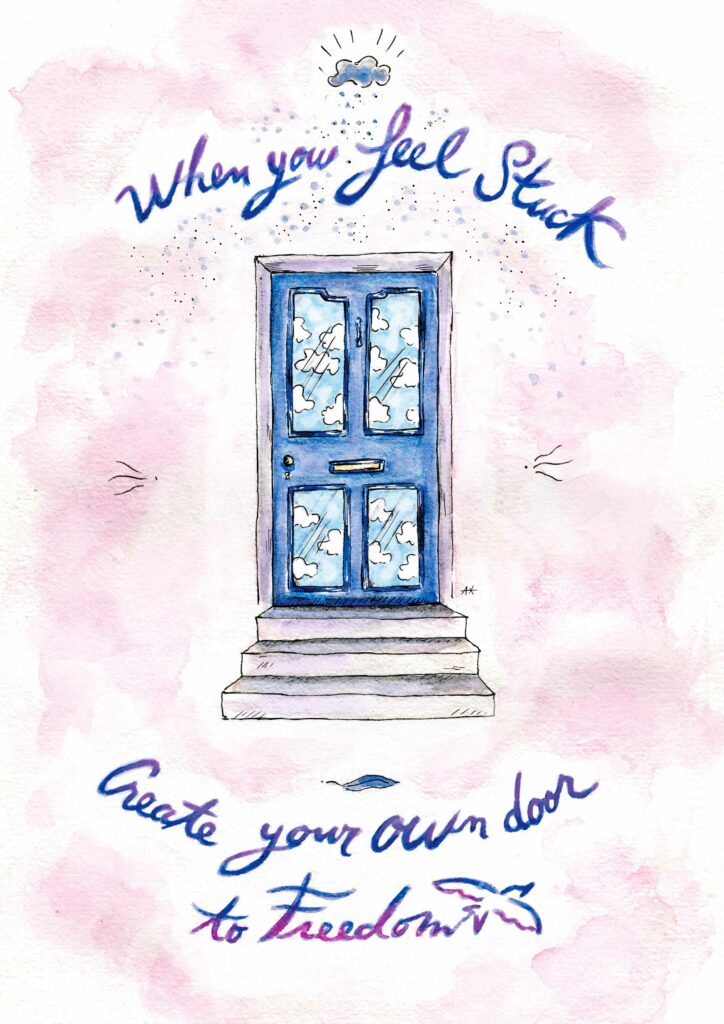 When you feel Stuck
AK
Create your own door
to Freedom